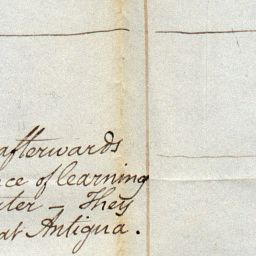 afterwards
of learning
They
at Antigua.